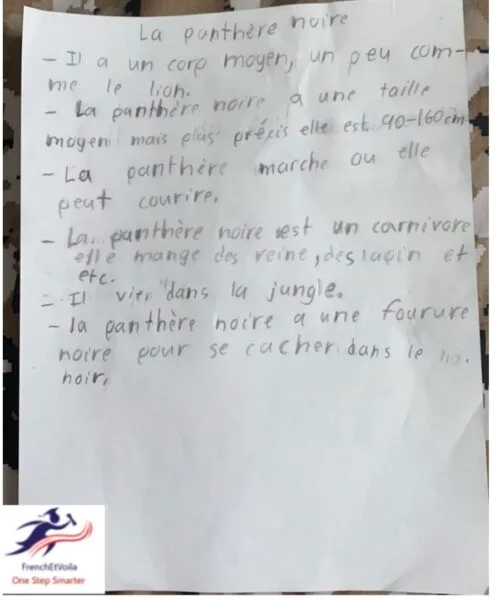 La panthère noire
- Il a un corp moyen, un peu com-
me le lion.
- La panthère noire a une taille
moyen mais plus précis elle est 90-160cm
- La panthère marche ou elle
peut courire.
- La panthère noire est un carnivore
elle mange des reine, des lapin et
etc.
- Il vier dans la jungle.
- la panthère noire a une fourure
noire pour se cacher dans le
noir.
FrenchEtVoila
One Step Smarter